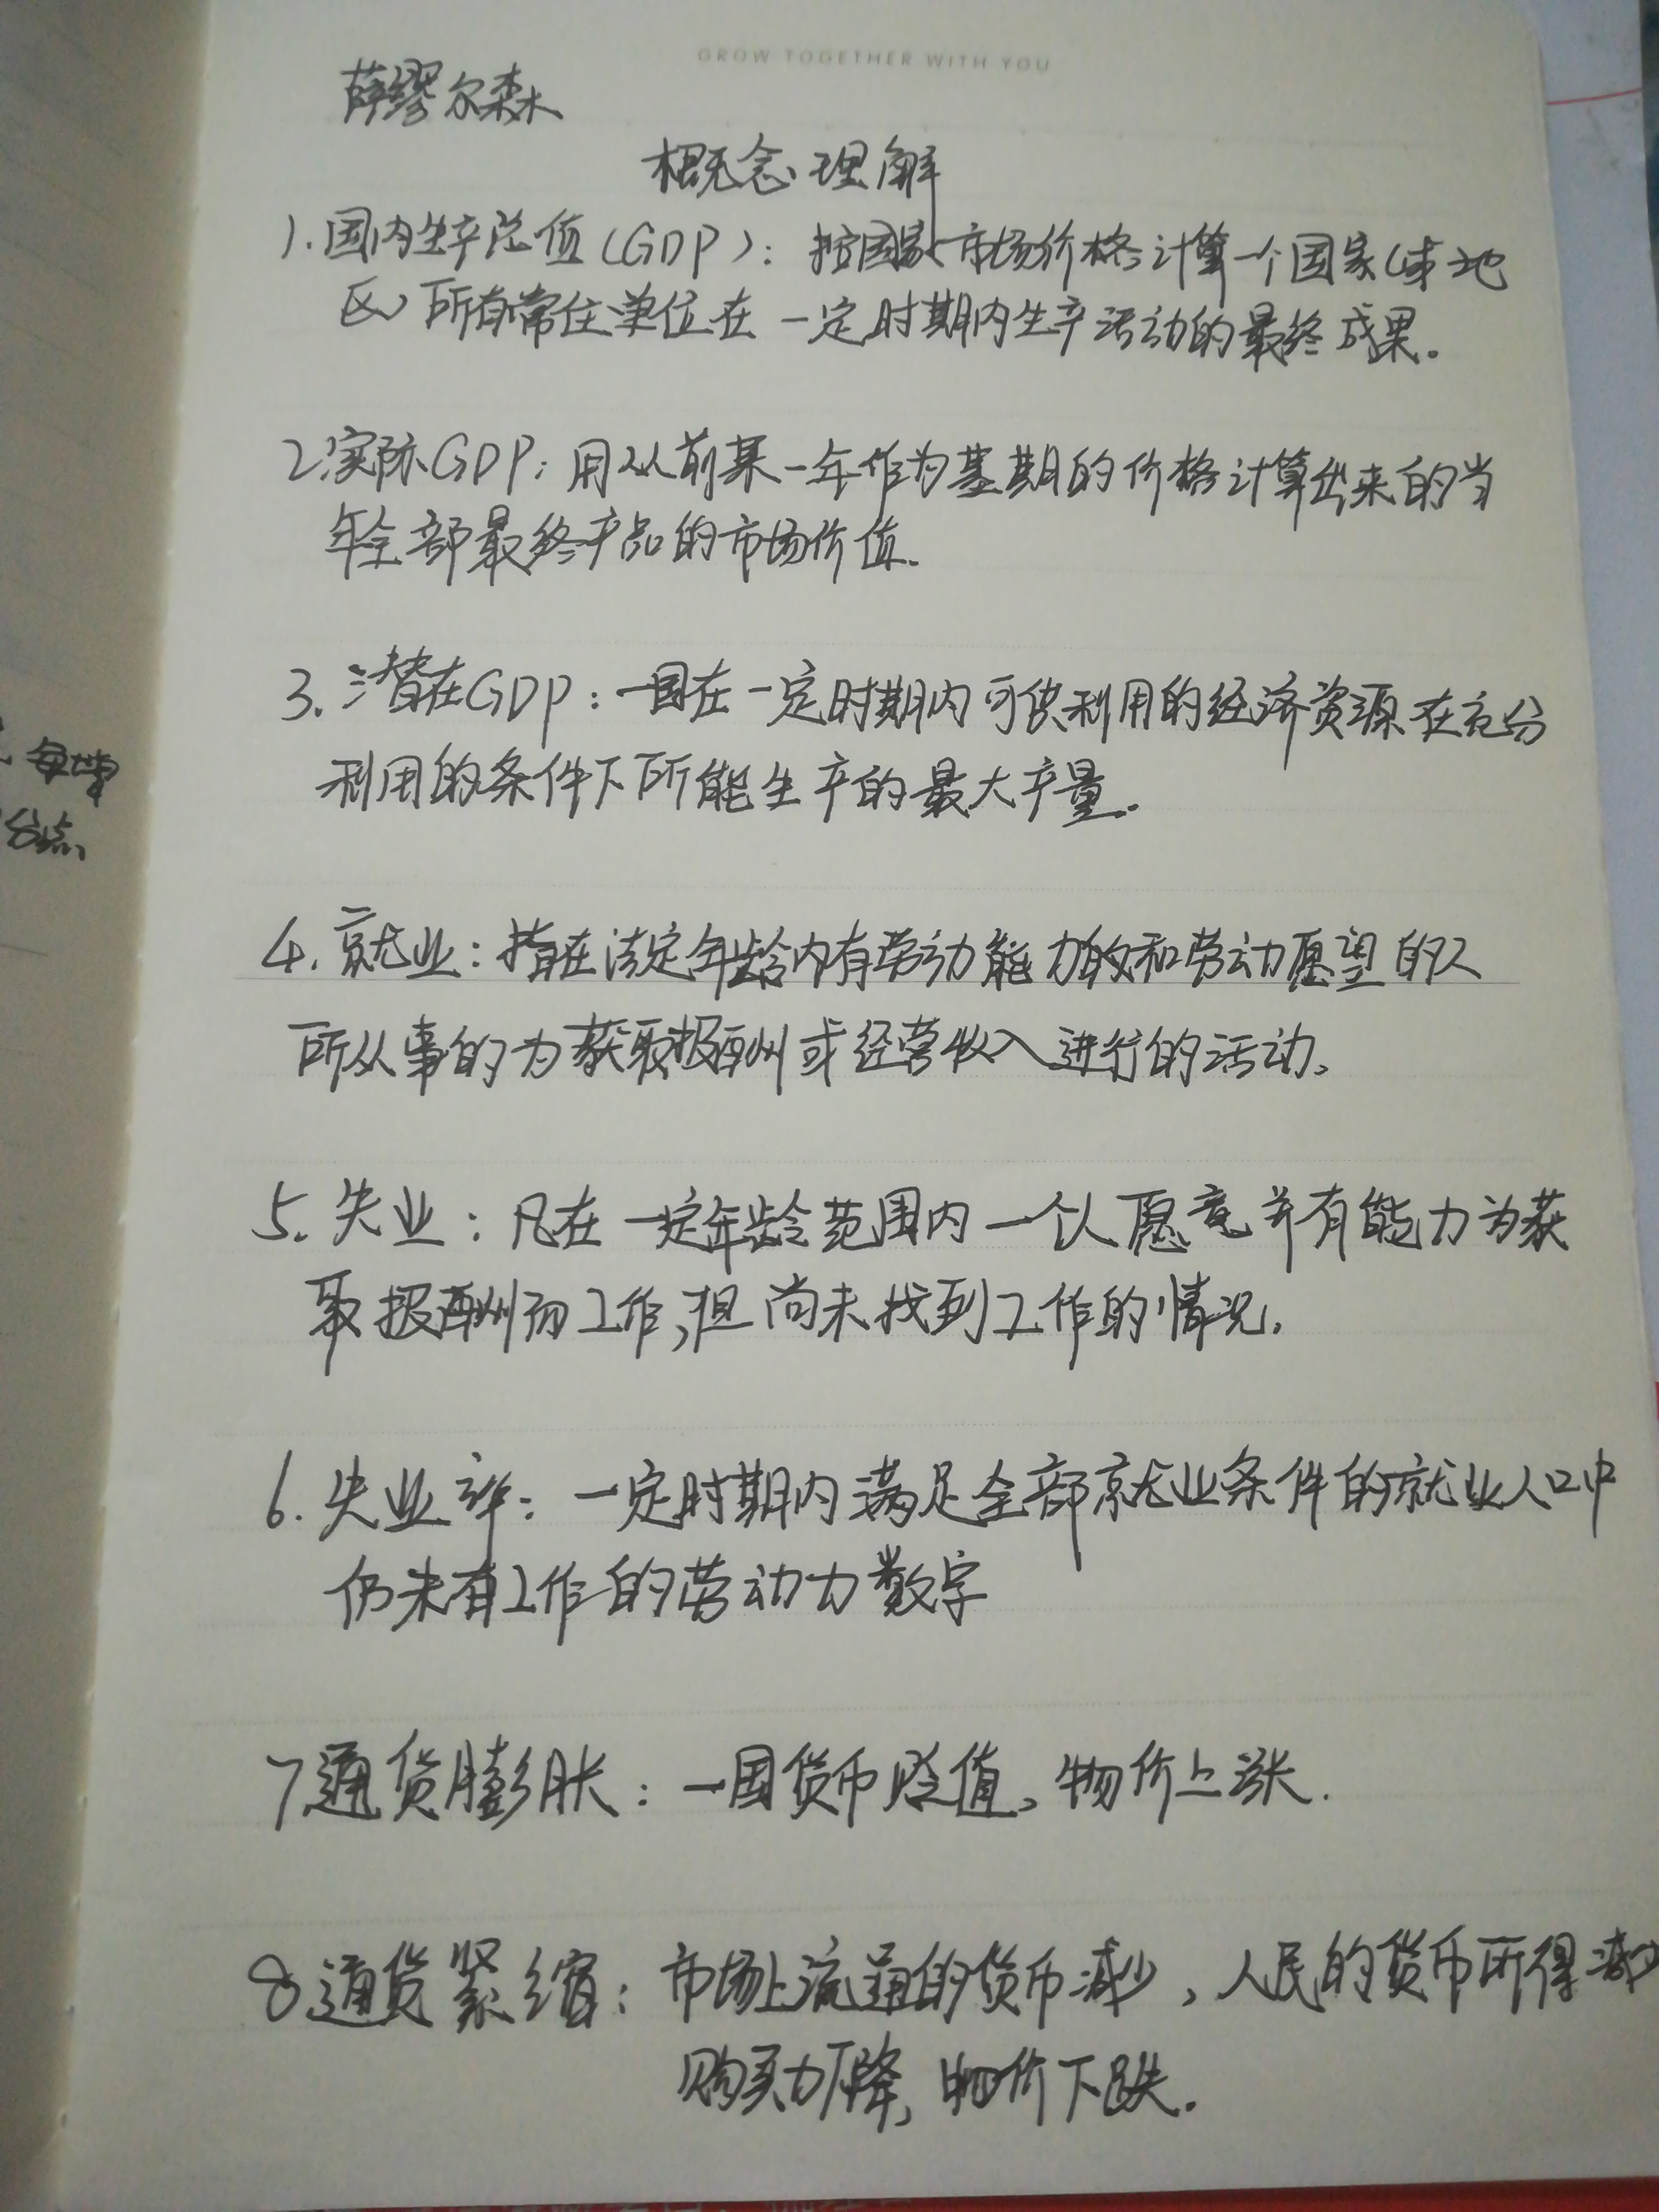 GROW TOGETHER WITH YOU
薛缪尔森
概念理解
1.国内生产总值(GDP):按国家市场价格计算一个国家(或地
区)所有常住单位在一定时期内生产活动的最终成果。
2.实际GDP:用从前某一年作为基期的价格计算出来的当
年全部最终产品的市场价值.
3.潜在GDP:一国在一定时期内可供利用的经济资源在充分
利用的条件下所能生产的最大产量.
4.就业:指在法定年龄内有劳动能力的和劳动愿望的人
所从事的为获取报酬或经营收入进行的活动。
5.失业:凡在一定年龄范围内一个人愿意并有能力为获
取报酬而工作,但尚未找到工作的情况.
6.失业率:一定时期内满足全部就业条件的就业人口中
仍未有工作的劳动力数字
7通货膨胀:一国货币贬值,物价上涨.
8通货紧缩:市场上流通的货币减少,人民的货币所得减少
购买力下降,物价下跌.
点